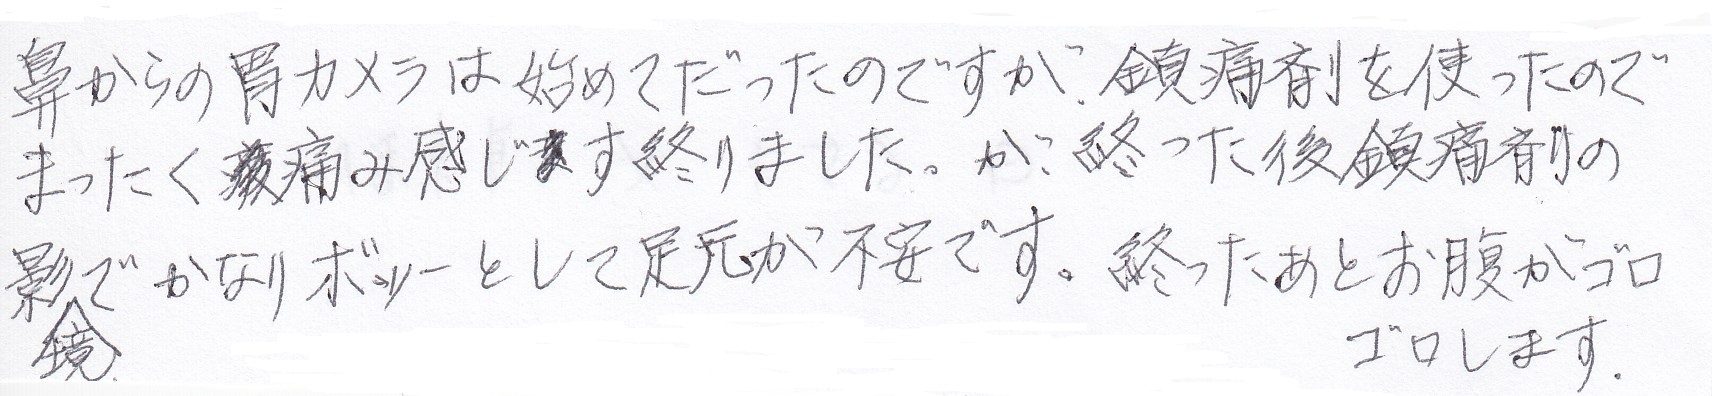 鼻からの胃カメラは始めてだったのですが、鎮痛剤を使ったので
まったく痛み感じす終りました。が、終った後鎮痛剤の
影でかなりボッーとして足元が不安です。終ったあとお腹がゴロ
響
ゴロします.